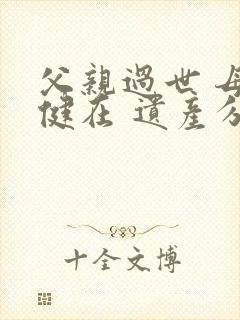 父親過世 母
健在 遺產分
十全文博